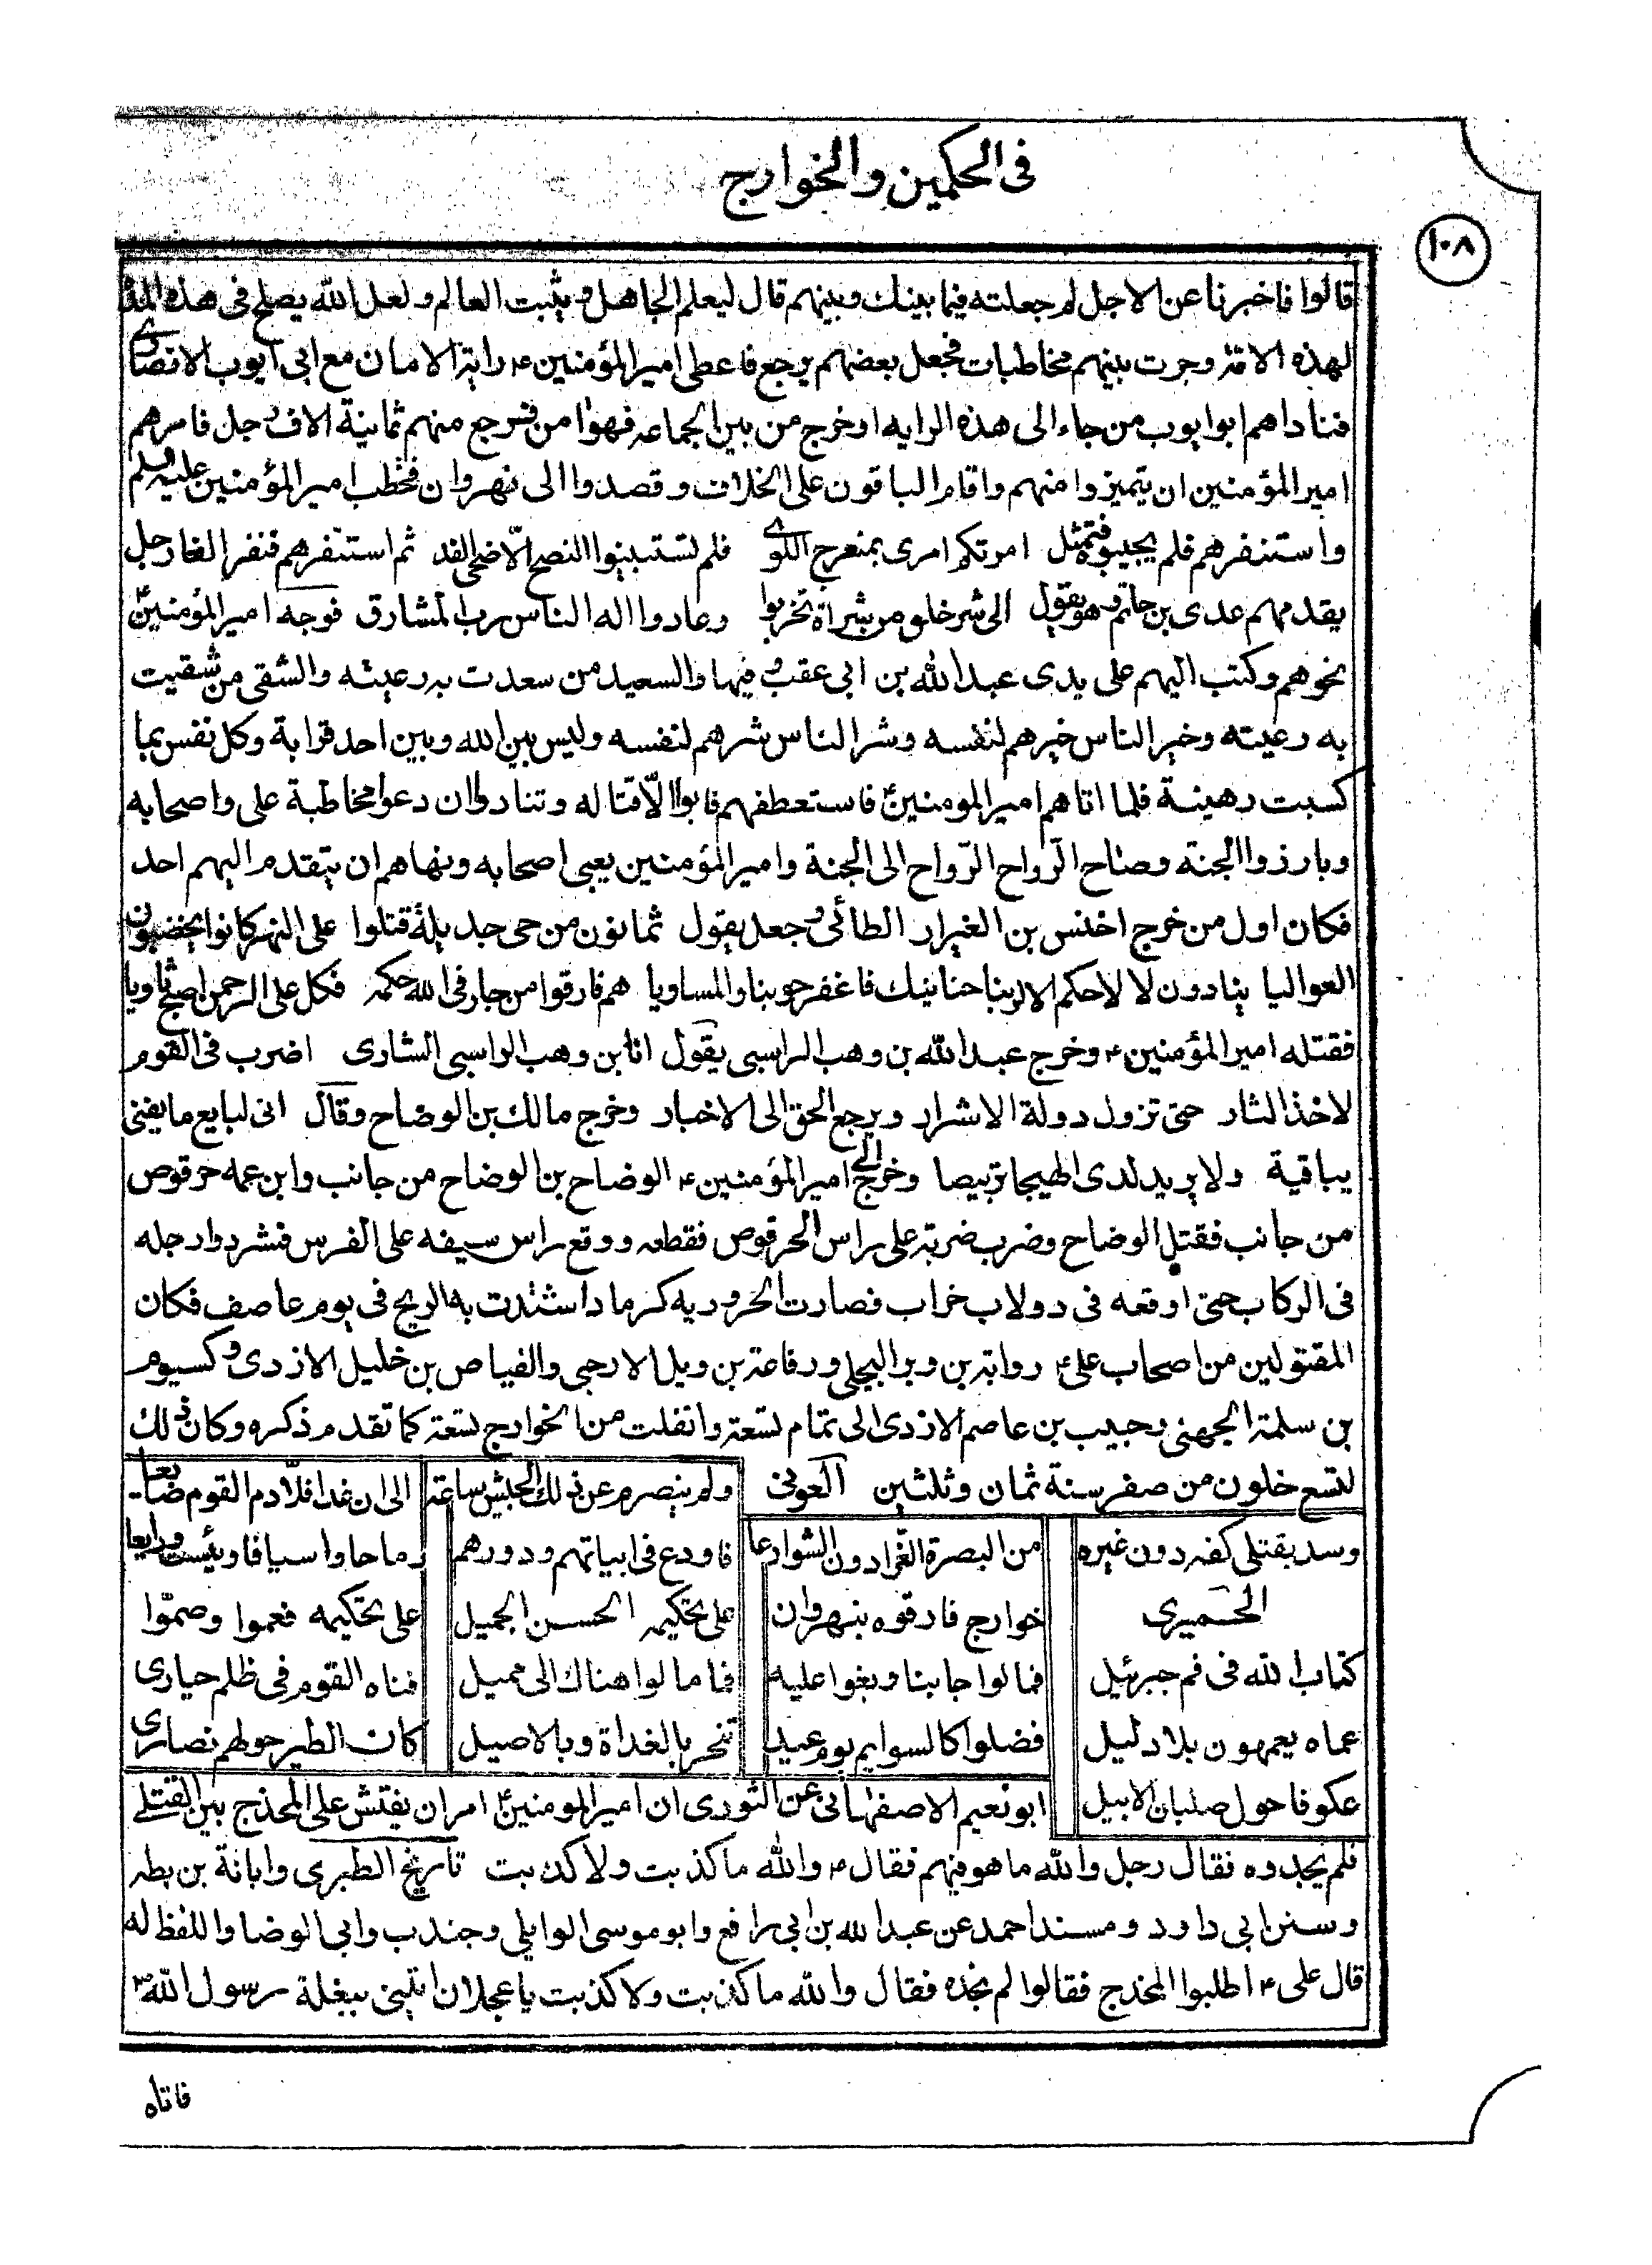 فى الحكمين والخوارج
١٠٨
قالوا فاخبرنا عن الاجل لم جعلته فيما بينك وبينهم قال ليعلم الجاهل ويثبت العالم ولعل الله يصلح فى هذه المدة
لهذه الامة وجرت بينهم مخاطبات فجعل بعضهم يرجع فاعطى امير المؤمنين ع راية الامان مع ابى ايوب الانصارى
فناداهم ابو ايوب من جاء الى هذه الراية او خرج من بين الجماعة فهو امن فرجع منهم ثمانية الاف رجل فامرهم
امير المؤمنين ان يتميزوا منهم واقام الباقون على الخلاف وقصدوا الى نهروان فخطب امير المؤمنين عليه السلم
واستنفرهم فلم يجيبوه فتمثل امرتكم امرى بمنعرج اللوى فلم تستبينوا النصح الّا ضحى الغد ثم استنفرهم فنفر الفا رجل
يقدمهم عدى بن حاتم وهو يقول الى شر خلق من شراة تحزبوا وعادوا اله الناس رب المشارق فوجه امير المؤمنين ع
نحوهم وكتب اليهم على يدى عبد الله بن ابى عقب وفيها والسعيد من سعدت به رعيته والشقى من شقيت
به رعيته وخير الناس خيرهم لنفسه وشر الناس شرهم لنفسه وليس بين الله وبين احد قرابة وكل نفس بما
كسبت رهينة فلما اتاهم امير المومنين ع فاستعطفهم فابوا الّا قتاله وتنادوا ان دعوا مخاطبة على واصحابه
وبارزوا الجنة وصاح الرّواح الرّواح الى الجنة وامير المؤمنين يعبى اصحابه ونهاهم ان يتقدم اليهم احد
فكان اول من خرج اخنس بن الغيرار الطائى وجعل يقول ثمانون من حى جديلة قتلوا على النهر كانوا يخضبون
العواليا ينادون لا لا حكم الا لربنا حنانيك فاغفر حوبنا والمساويا هم فارقوا من جار فى الله حكمه فكل على الرحمن اصبح ثاويا
فقتله امير المؤمنين ع وخرج عبد الله بن وهب الراسبى يقول انا ابن وهب الراسبى الشارى اضرب فى القوم
لاخذ الثار حتى تزول دولة الاشرار ويرجع الحق الى الاخيار وخرج مالك بن الوضاح وقال انى لبايع ما يفنى
بباقية ولا يريد لدى الهيجا تربيصا وخرج الى امير المؤمنين ع الوضاح بن الوضاح من جانب وابن عمه حرقوص
من جانب فقتل الوضاح وضرب ضربة على راس الحرقوص فقطعه ووقع راس سيفه على الفرس فشرد وارجله
فى الركاب حتى اوقعه فى دولاب خراب فصارت الحرورية كرماد اشتدت به الريح فى يوم عاصف فكان
المقتولين من اصحاب على ع روابة بن وبر البجلى ورفاعة بن وبل الارحبى والفياص بن خليل الازدى وكسيوم
بن سلمة الجهنى وحبيب بن عاصم الازدى الى تمام تسعة وانفلت من الخوارج تسعة كما تقدم ذكره وكان ذلك
لتسع خلون من صفر سنة ثمان وثلثين العونى ولم ينصرم عن ذلك الجيش ساعة الى ان غدا فلّا دم القوم ضايعا
وسد بقتلى كفه دون غيره من البصرة الغّرا دون الشوارعا فاودع فى ابياتهم ودورهم رماحا واسيافا
الحميرى خوارج فارقوه بنهروان على تحكيمه الحسن الجميل على تحكيمه فعموا وصمّوا
كتاب الله فى فم جبرئيل فمالوا جانبا وبغوا عليه فما مالوا هناك الى مميل فتاه القوم فى ظلم حيارى
عماه يعمهون بلا دليل فضلوا كالسوايم يوم عيد تنحر بالغداة وبالاصيل كان الطير حولهم نصارى
عكوفا حول صلبان الابيل ابو نعيم الاصفهانى عن الثورى ان امير المومنين ع امر ان يفتش على المخدج بين القتلى
فلم يجدوه فقال رجل والله ما هو فيهم فقال ع والله ما كذبت ولا كذبت تاريخ الطبرى وابانة بن بطه
وسنن ابى داود ومسند احمد عن عبد الله بن ابى رافع وابو موسى الوايلى وجندب وابى الوضا واللفظ له
قال على ع اطلبوا المخدج فقالوا لم نجده فقال والله ما كذبت ولا كذبت يا عجلان ايتينى ببغلة رسول الله ص
فاتاه